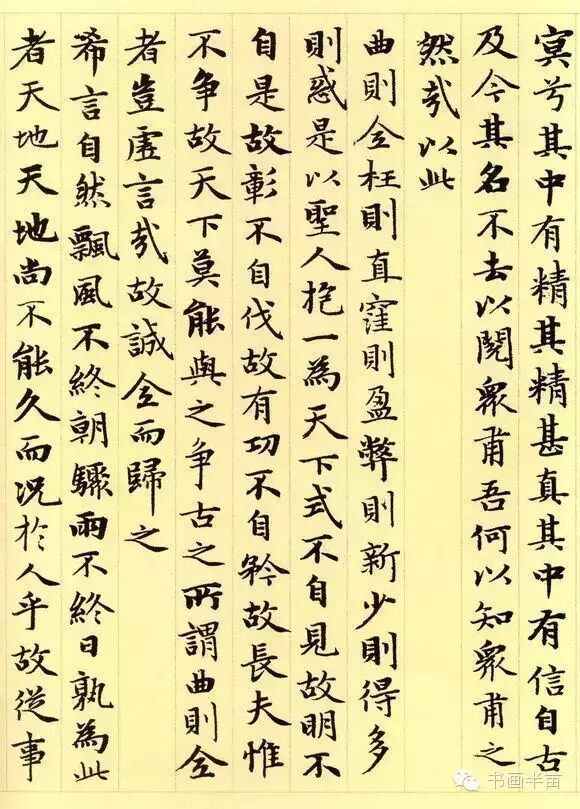 冥兮其中有精其精甚真其中有信自古
及今其名不去以閱眾甫吾何以知眾甫之
然哉以此
曲則全枉則直窪則盈弊則新少則得多
則惑是以聖人抱一為天下式不自見故明不
自是故彰不自伐故有功不自矜故長夫惟
不争故天下莫能與之争古之所謂曲則全
者豈虛言哉故誠全而歸之
希言自然飄風不終朝驟雨不終日孰為此
者天地天地尚不能久而况於人乎故從事
书画半亩